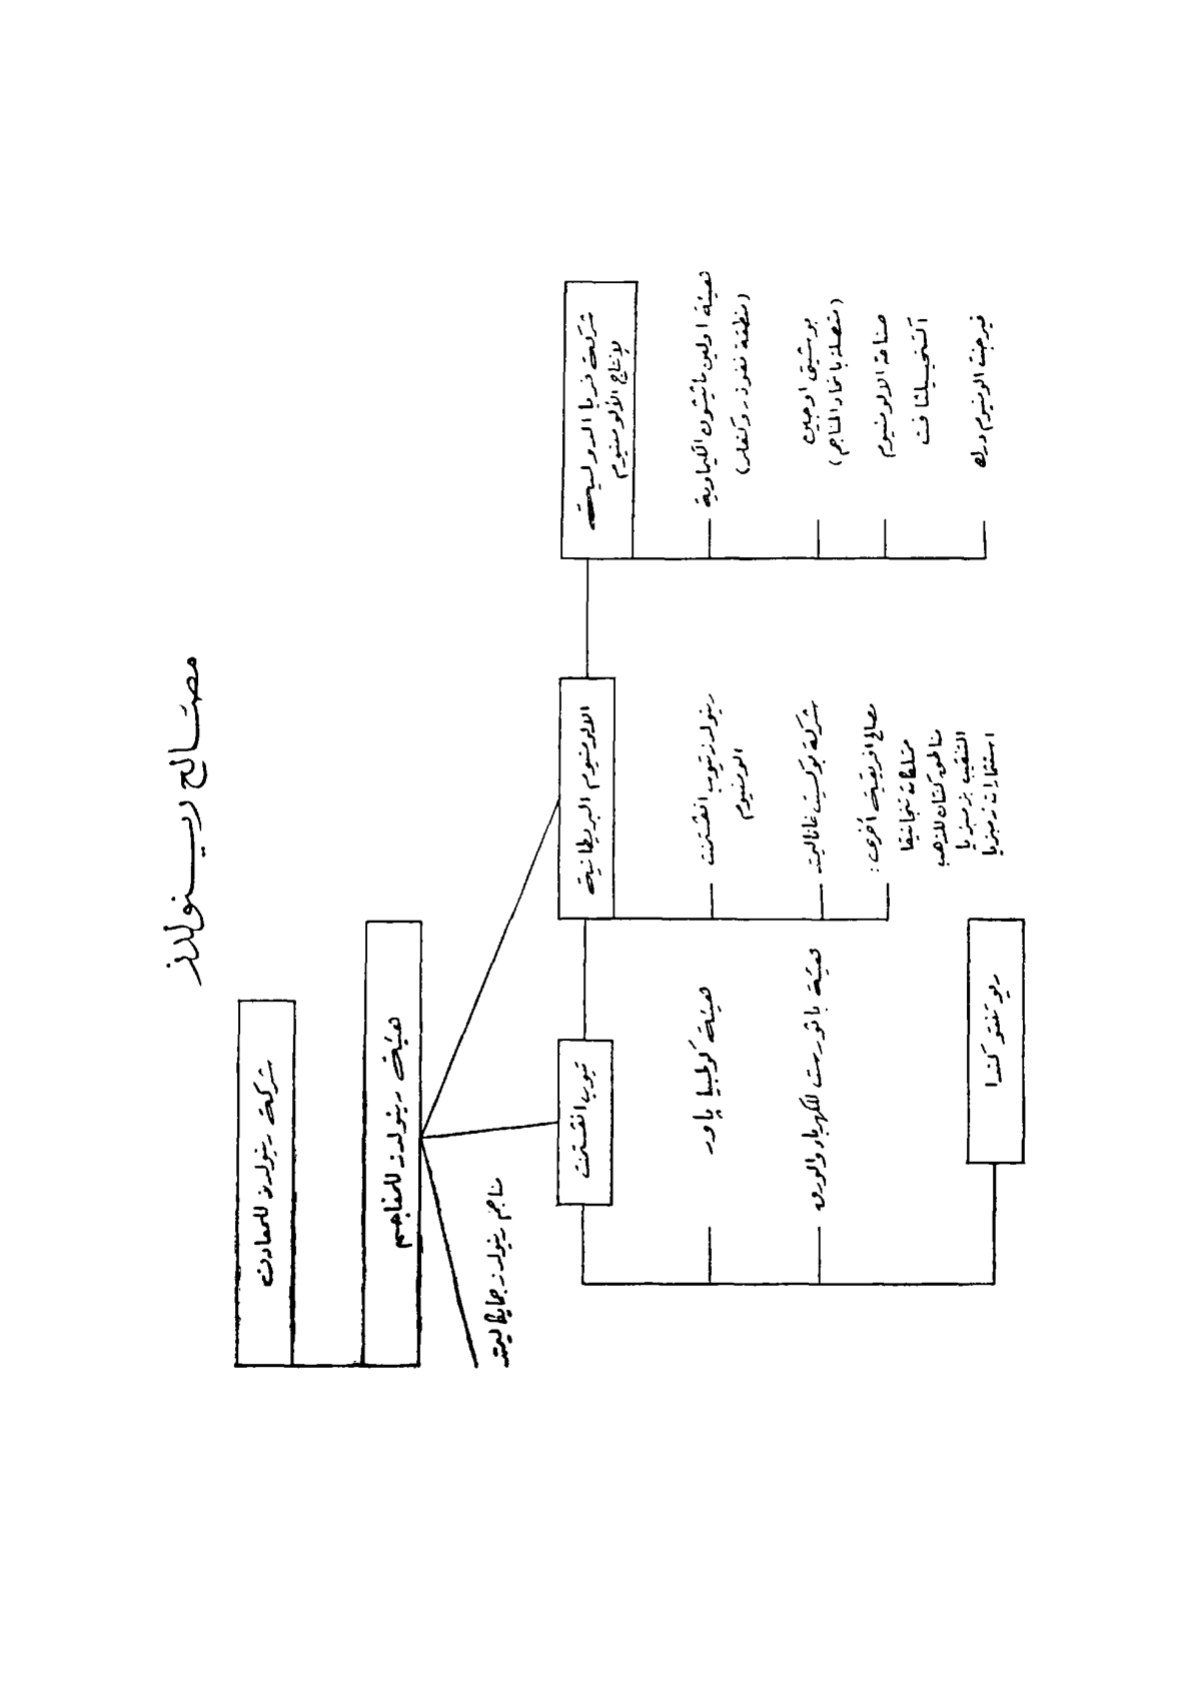 مصالح رينولدز
شركة رينولدز للمعادن
هيئة رينولدز للمناجم
مناجم رينولدز جمايكا ليمتد
تيوب انفستمنت
الالومنيوم البريطانية
شركة فريا الدولية
لإنتاج الألومنيوم
هيئة كولمبيا پاور
هيئة باثورست للكهرباء والورق
ريو تنتو كندا
رينولدز تيوب انفستمنت
الومنيوم
شركة بوكسيت غانا ليمتد
مصالح افريقية أخرى:
تنجانيقا
للذهب
التنقيب بزمبيزيا
استثمارات زمبيزيا
هيئة اولين ماثيسون الكيماوية
(منطقة نفوذ روكفلر)
بوشيني اوجين
(متصلة باتحاد المناجم)
صناعة الالومنيوم
اكتنجيسيلشافت
فيرجنت الومنيوم ورك